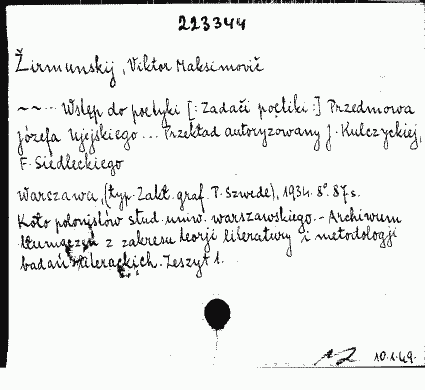 223344
Žirmunskij, Viktor Maksimovič
~~·· Wstęp do poetyki [: Zadači poėtiki :] Przedmowa
Józefa Ujejskiego ... Przekład autoryzowany J. Kulczyckiej,
F. Siedleckiego
Warszawa, (typ. Zakł. graf. P. Szwede), 1934. 8° 87 s.
Koło polonistów stud. uniw. warszawskiego. - Archiwum
tłumaczeń z zakresu teorji literatury i metodologji
badań literackich. Zeszyt 1.
10.1.49.